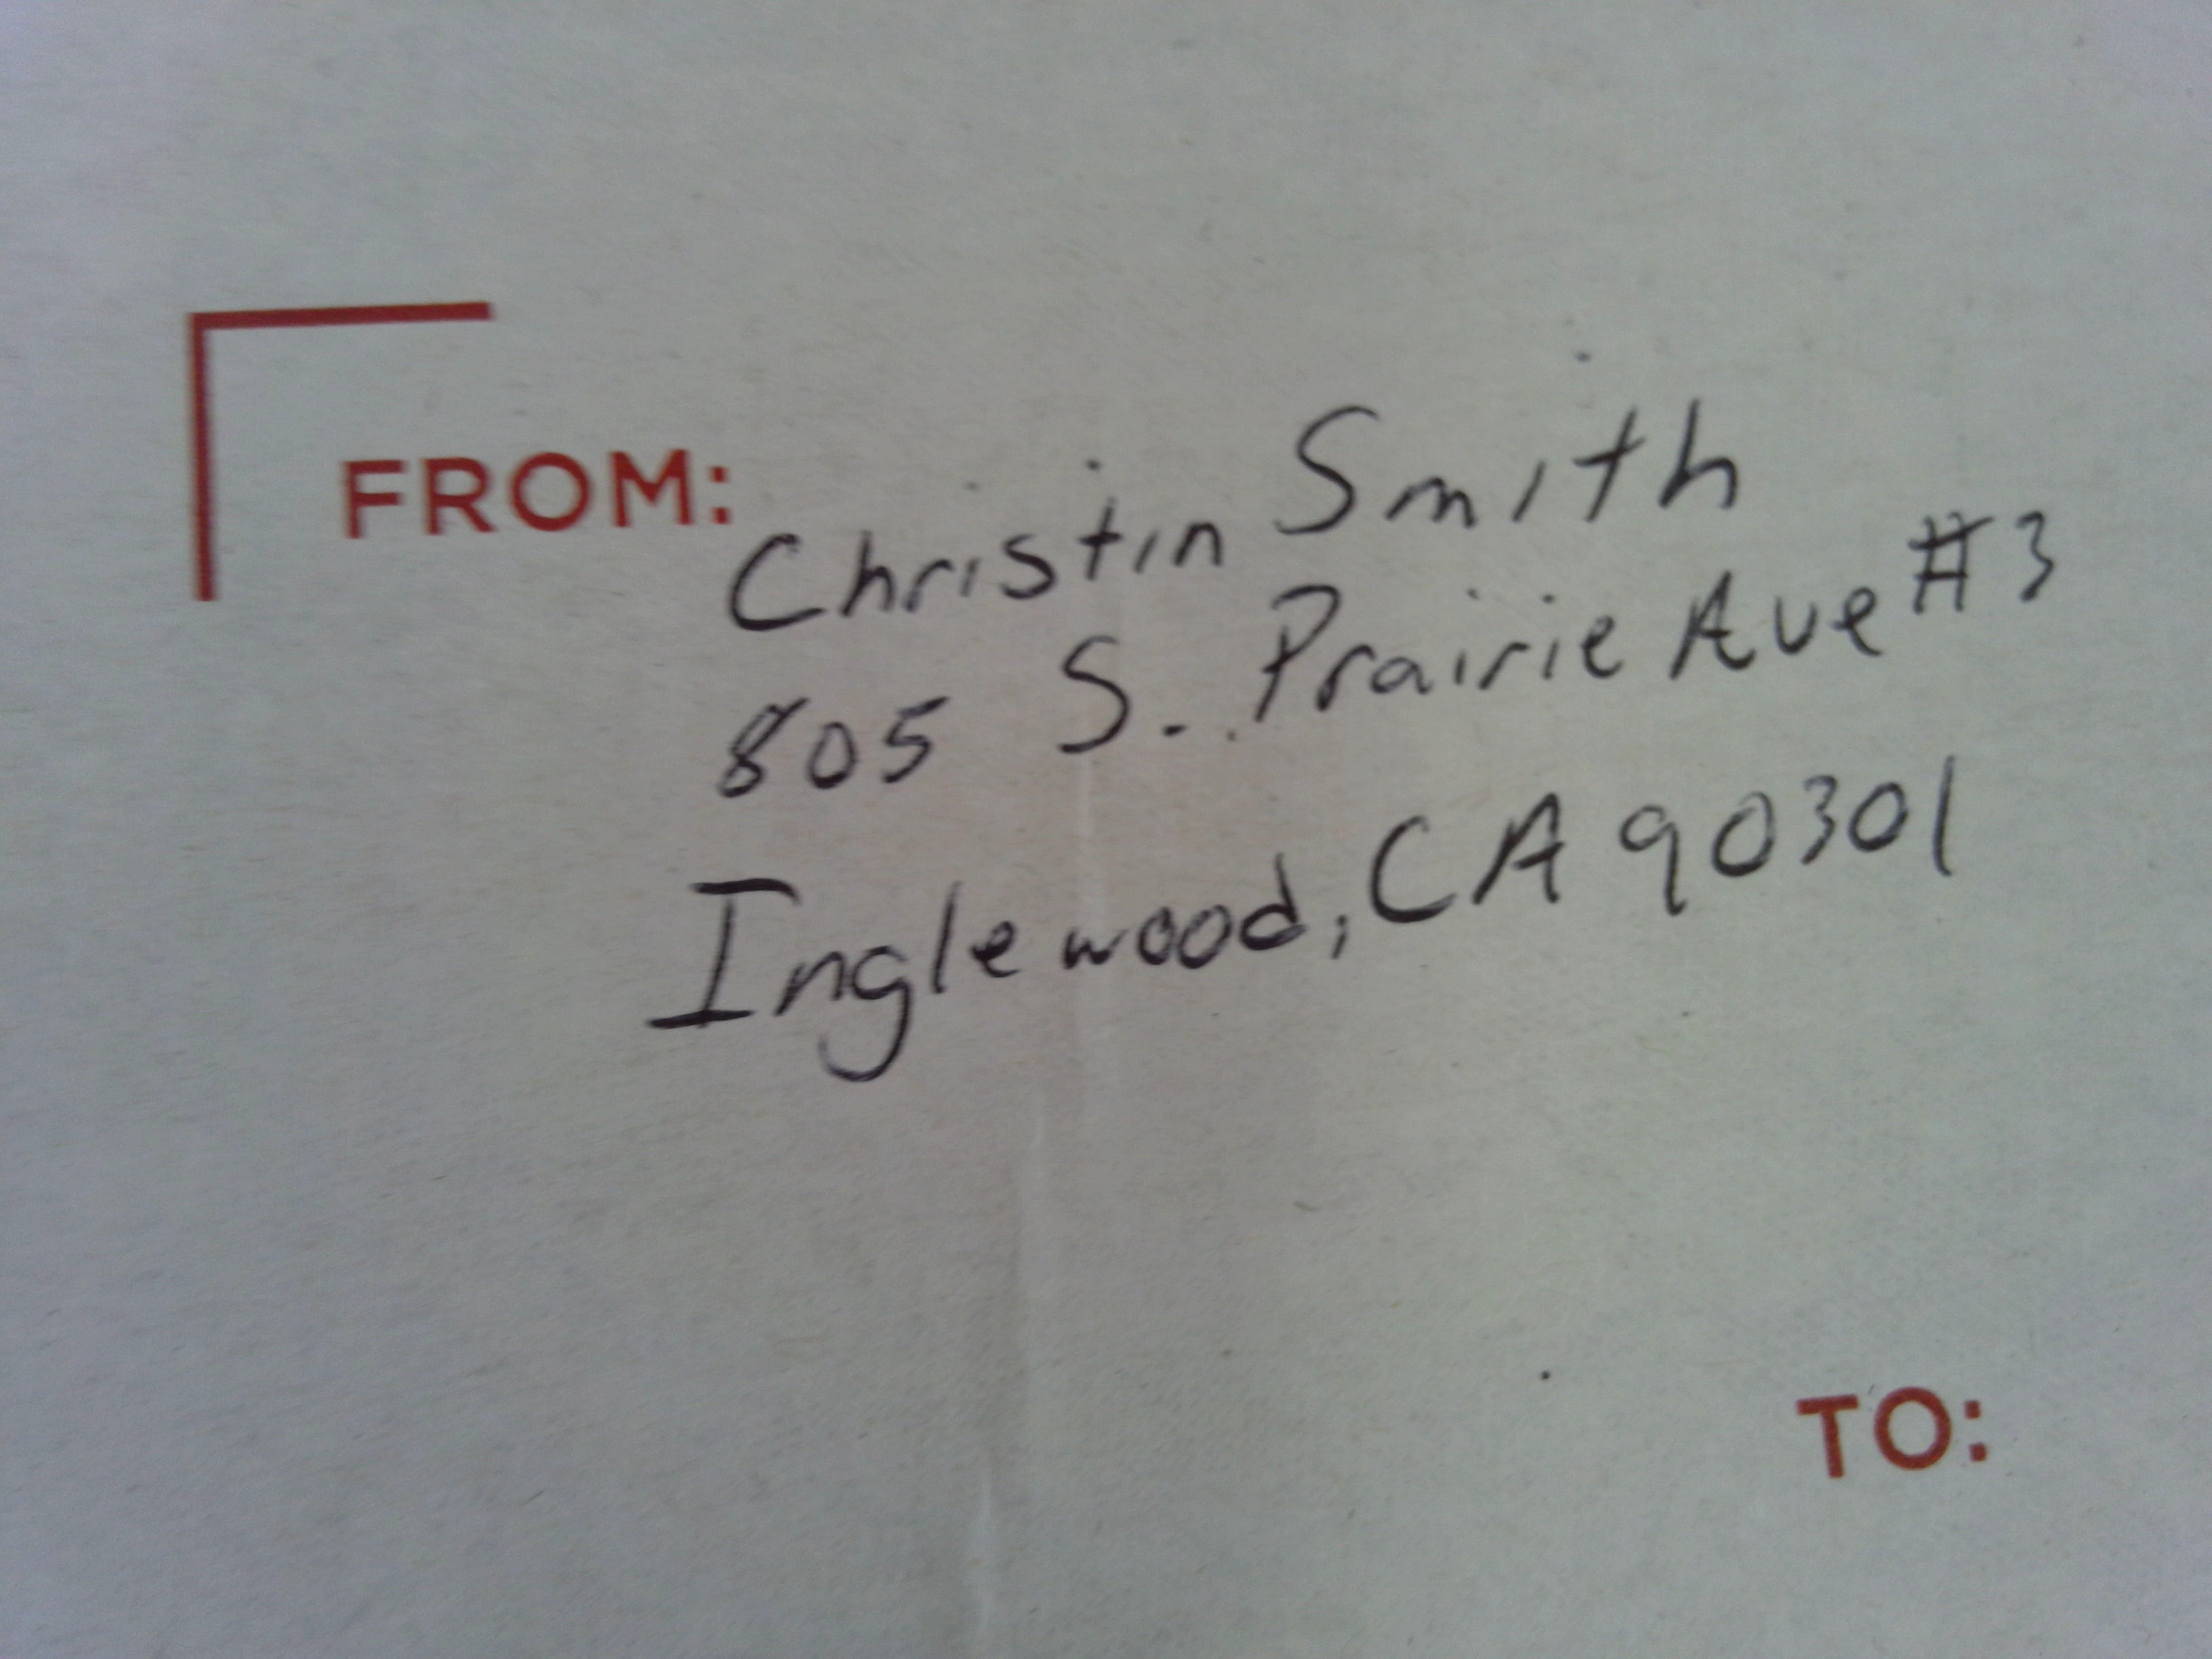 FROM:
Christin Smith
805 S. Prairie Ave #3
Inglewood, CA 90301
TO: